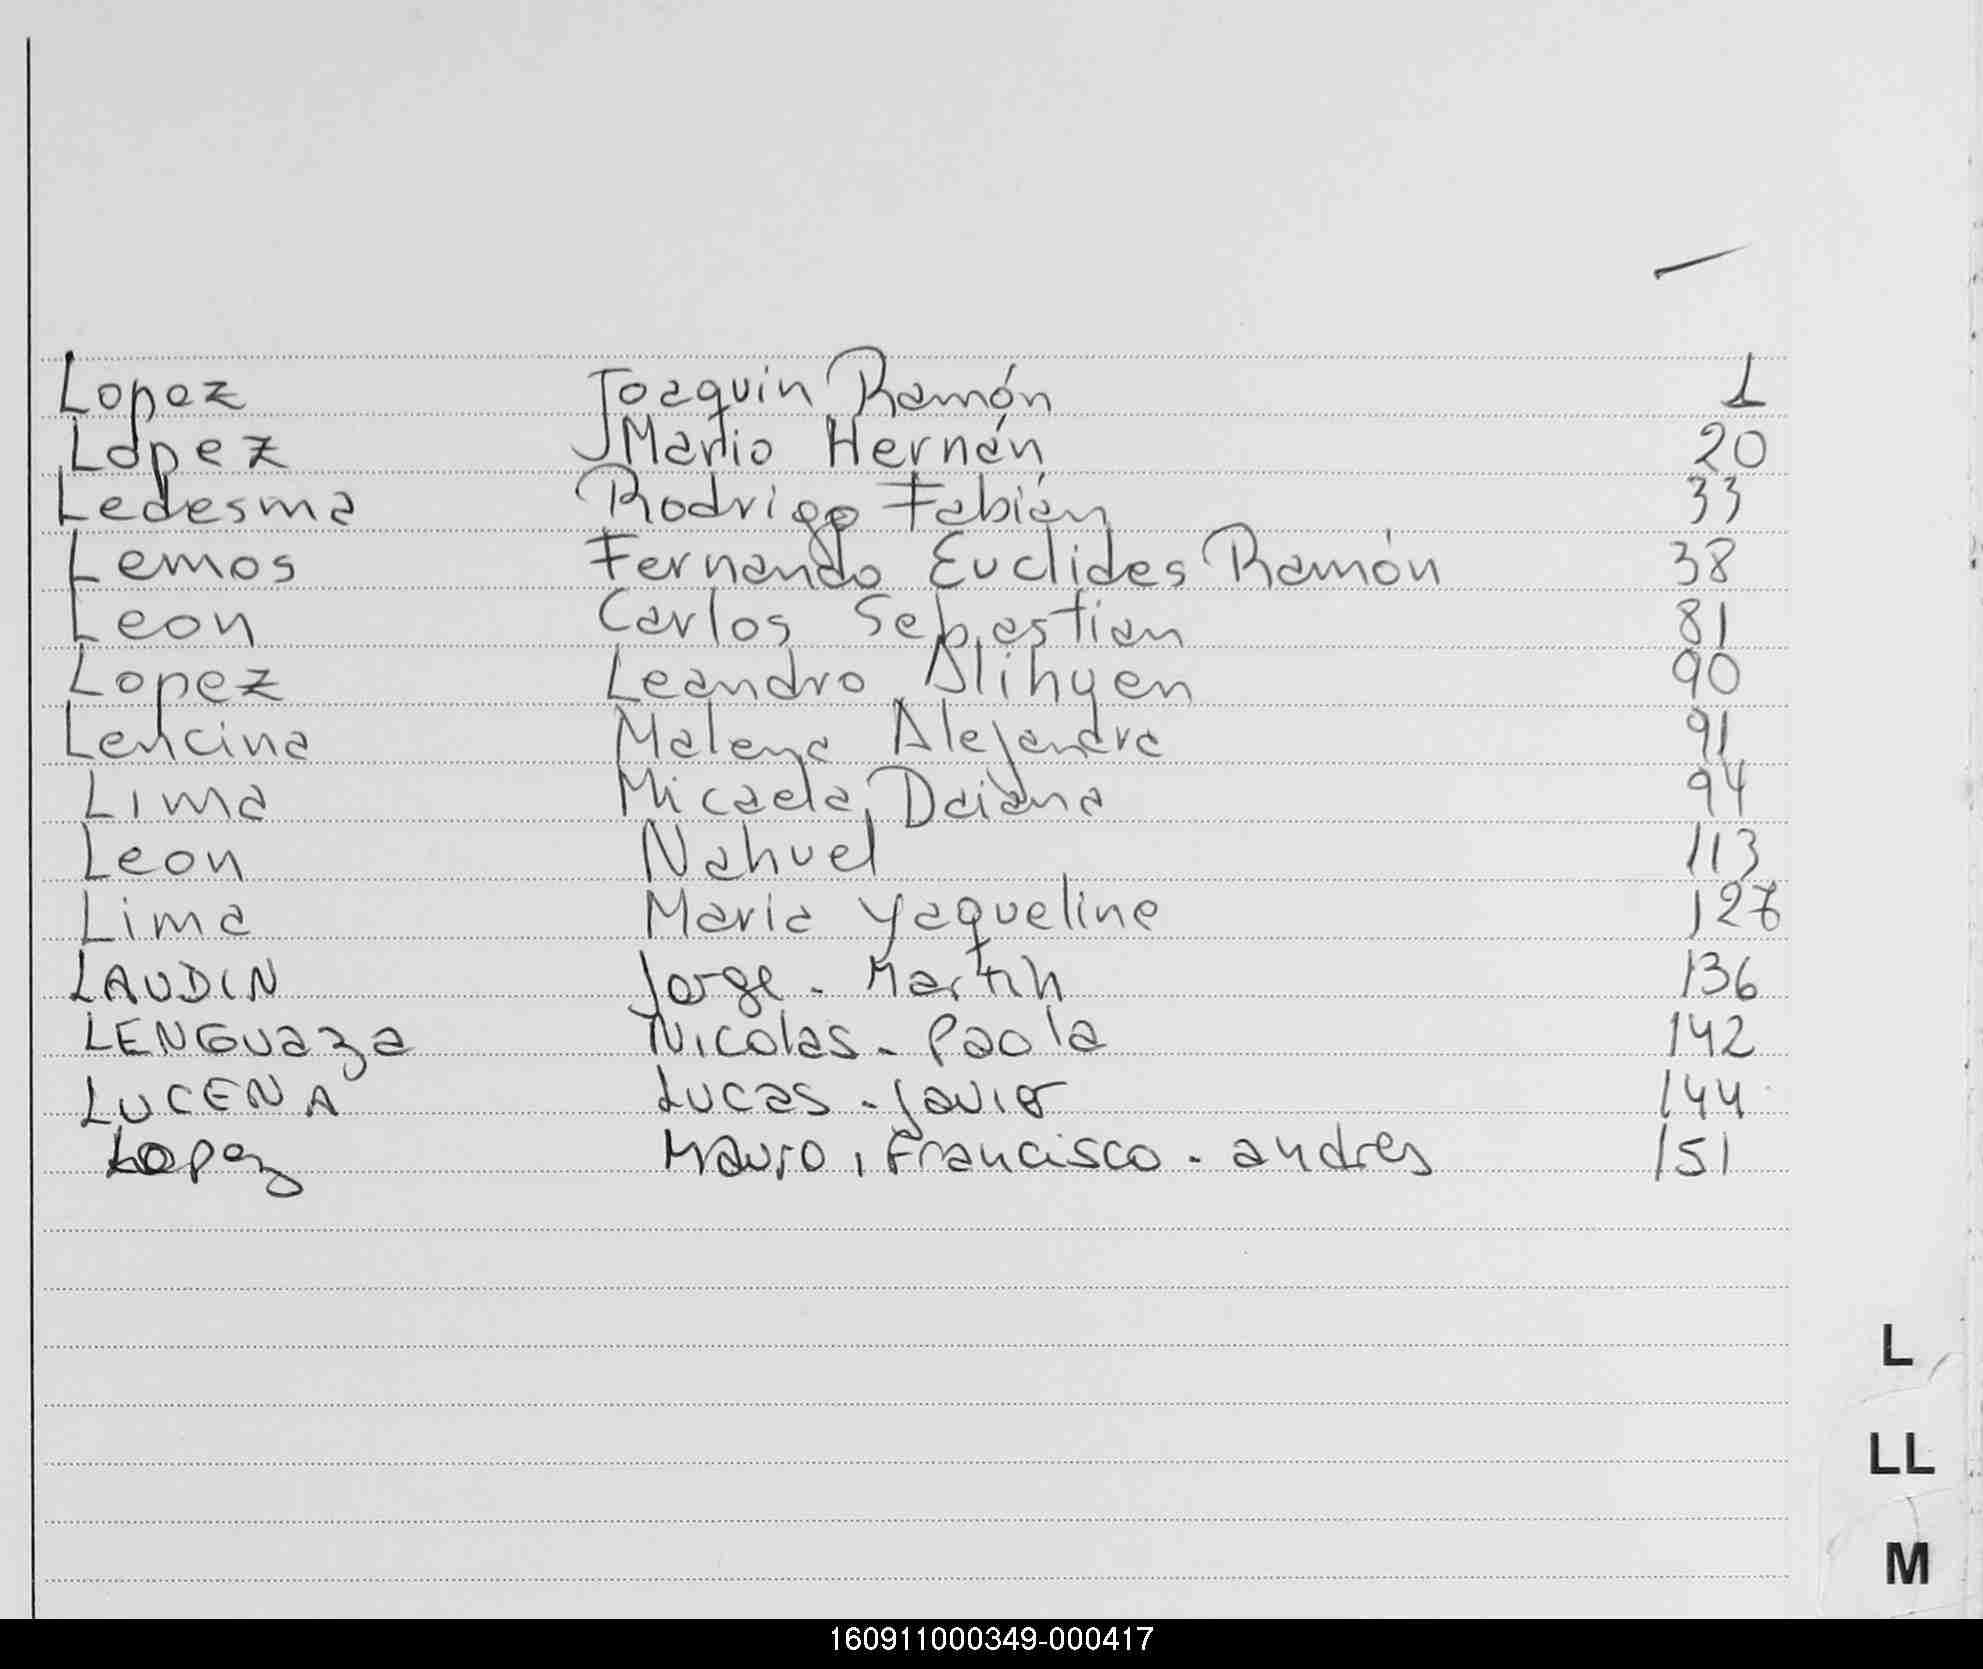 Lopez Joaquin Ramón 1
Lopez Mario Hernán 20
Ledesma Rodrigo Fabián 33
Lemos Fernando Euclides Ramón 38
Leon Carlos Sebastian 81
Lopez Leandro Alihuen 90
Lencina Malena Alejandra 91
Lima Micaela Daiana 94
Leon Nahuel 113
Lima Maria Yaqueline
LAUDIN Jorge - Martin 136
LENGUaza Nicolas - Paola 142
LUCENA Lucas - Javier 144
Lopez Mauro, Francisco - andres 151
L
LL
M
160911000349-000417